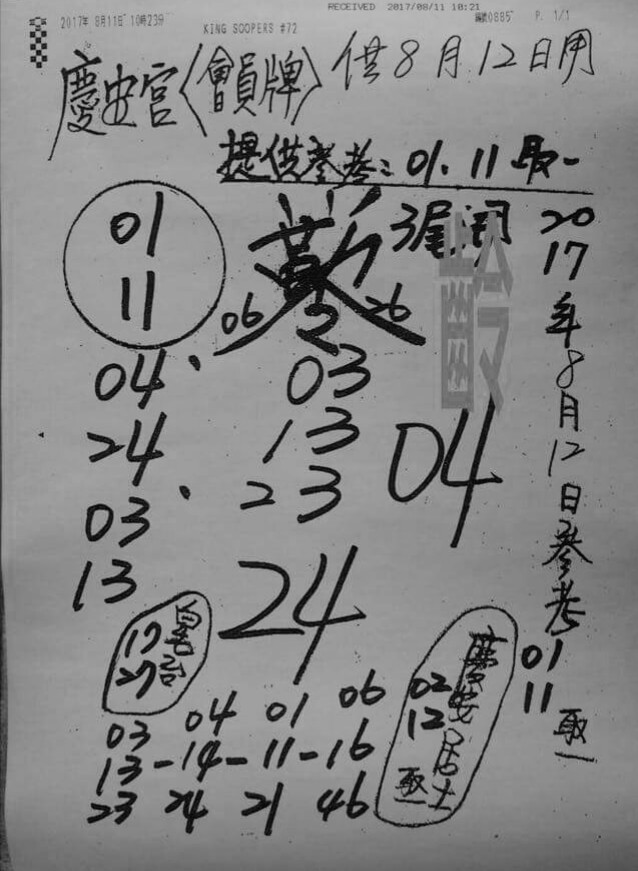 RECEIVED 2017/08/11 10:21
2017年 8月11日 10時23分
KING SOOPERS #72
P. 1/1
慶安宮〈會員牌〉供8月12日用
提供參考:01.11取一
01
11
3尾
06
26
04
24
03
13
03
13
23
04
24
2017年8月12日參考
01
11
取一
17
27
03 04 01 06
13-14-11-16
23 24 21 46
慶安居士
02
12
取一